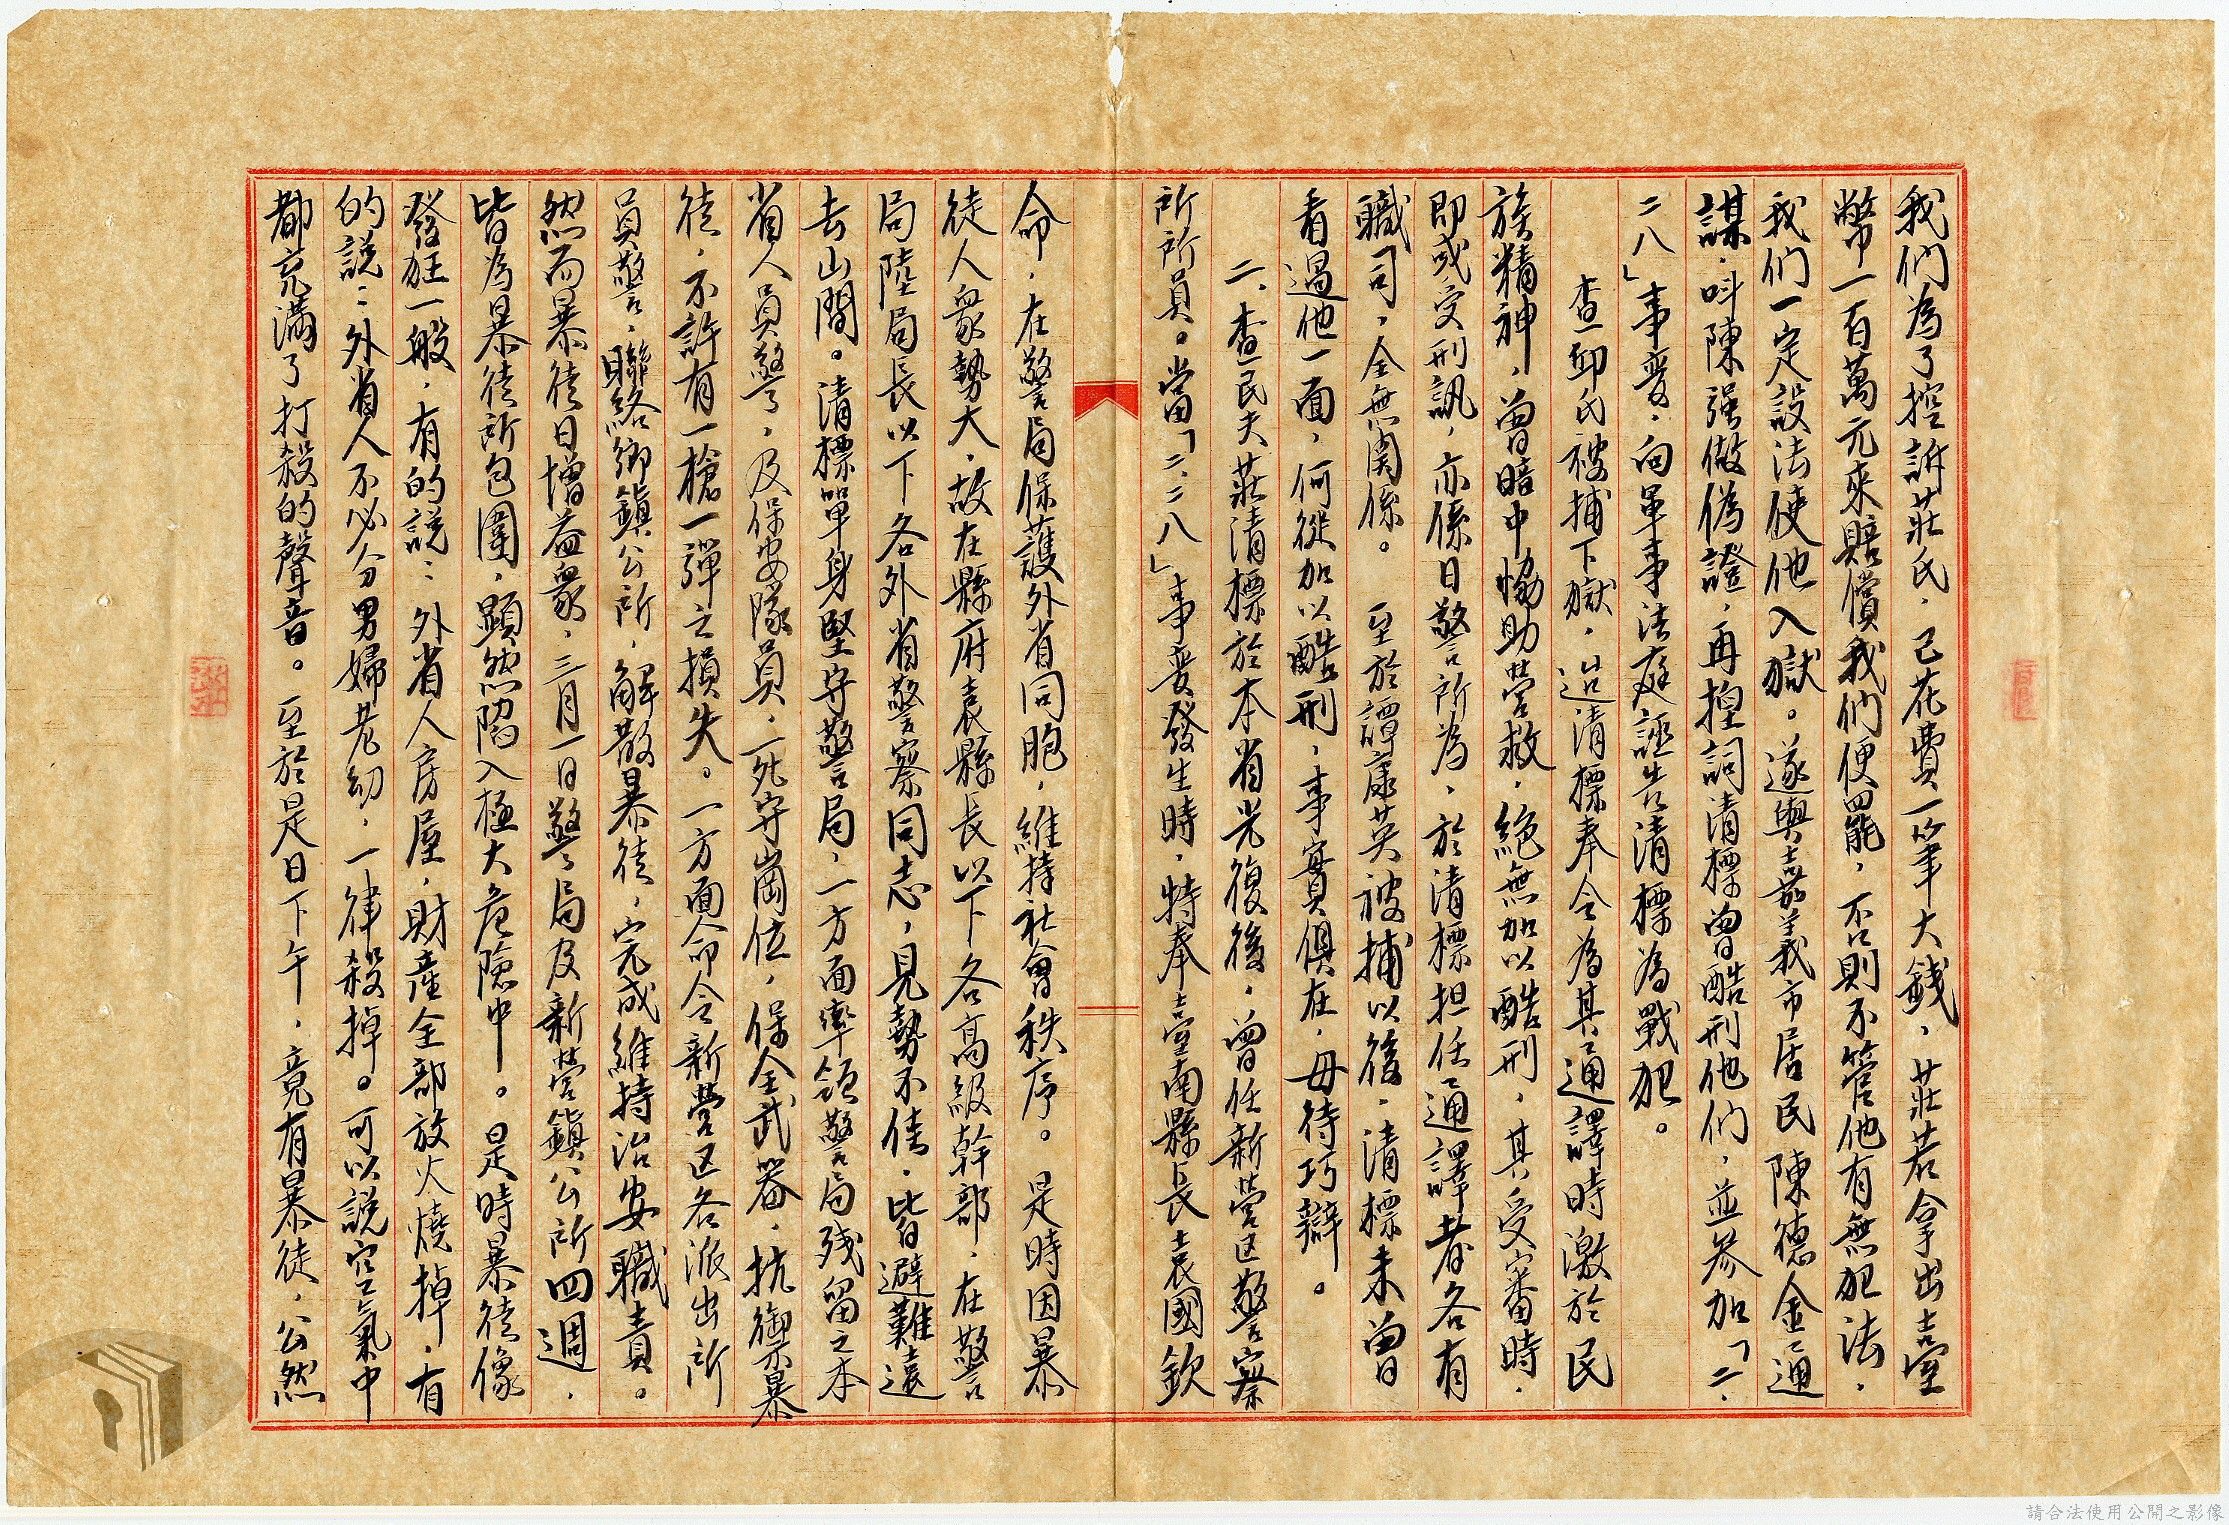 我们為了控訴莊氏，已花費一筆大錢，莊若拿出臺
幣一百萬元來賠償我们便罷，不否則不管他有無犯法，
我们一定設法使他入獄。遂與嘉義市居民陳德金通
謀，叫陳强做偽證，再揑詞清標曾酷刑他们，並參加「二．
二八」事變，向軍事法庭誣告清標為戰犯。
查邱氏被捕下獄，迨清標奉令為其通譯時激於民
族精神，曾暗中協助營救，絕無加以酷刑，其受審時，
即或受刑訊，亦係日警所為，於清標担任通譯者各有
職司，全無関係。　至於譚康英被捕以後，清標未曾
看過他一面，何從加以酷刑，事實俱在，毋待巧辯。
二、查民夫莊清標於本省光復後，曾任新營区警察
所所員。當「二．二八」事變發生時，特奉臺南縣長袁國欽
命，在警局保護外省同胞，維持社會秩序。是時因暴
徒人衆勢大，故在縣府袁縣長以下各高級幹部，在警
局陸局長以下各外省警察同志，見勢不佳，皆避難遠
去山間。清標單身堅守警局，一方面率領警局残留之本
省人員警，及保安隊員，死守崗位，保全武器，抗禦暴
徒，不許有一槍一彈之損失。一方面命令新營区各派出所
員警，聯絡鄉鎮公所，解散暴徒，完成維持治安職責。
然而暴徒日增益衆，三月一日警局及新營鎮公所四週，
皆為暴徒所包圍，顯然陷入極大危險中。是時暴徒像
發狂一般，有的説：外省人房屋，財産全部放火燒掉，有
的説：外省人不必分男婦老幼，一律殺掉。可以説空氣中
都充滿了打殺的聲音。至於是日下午，竟有暴徒，公然
請合法使用公開之影像